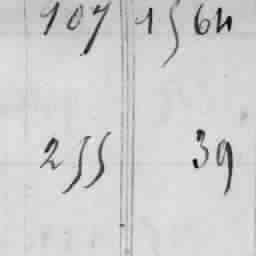 107 1564
255 39